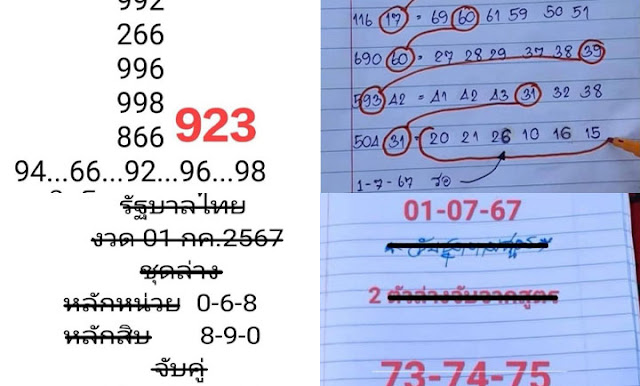 992
266
996
998
866 923
94...66...92...96...98
116 17 = 69 60 61 59 50 51
690 60 = 27 28 29 37 38 39
593 42 = 41 42 43 31 32 38
504 31 = 20 21 26 10 16 15
1-7-67 รอ
รัฐบาลไทย
งวด 01 กค.2567
ชุดล่าง
หลักหน่วย 0-6-8
หลักสิบ 8-9-0
จับคู่
01-07-67
2 ตัวล่างจับจากสูตร
73-74-75